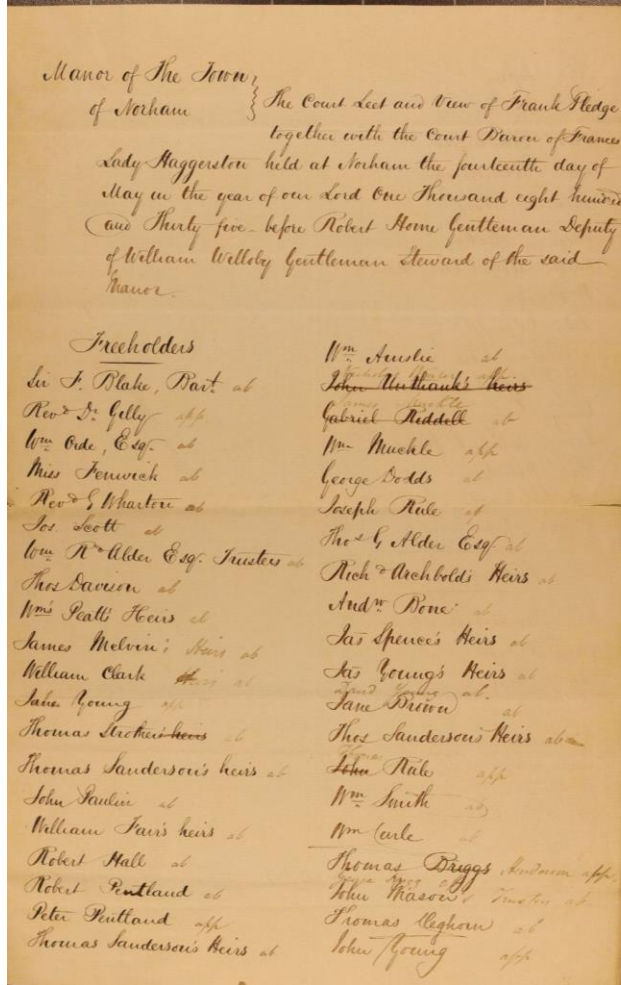 Manor of The Town
of Norham
The Court Leet and View of Frank Pledge
together with the Court Baron of Frances
Lady Haggerston held at Norham the fourteenth day of
May in the year of our Lord One Thousand eight hundred
and Thirty five - before Robert Home Gentleman Deputy
of William Willoby Gentleman Steward of the said
Manor.
Freeholders
Sir F. Blake, Bart. ab
Revd Dr Gilly app
Wm Orde, Esq. ab
Miss Fenwick ab
Revd G Wharton ab
Jos. Scott ab
Wm Rd Alder Esq. Trustees ab
Thos Davison ab
Wm's Peatt's Heirs ab
James Melvin's Heirs ab
William Clark ab
Young app
Thomas Strother's heirs ab
Thomas Sanderson's heirs ab
John Paulin ab
William Fair's heirs ab
Robert Hall ab
Robert Pentland ab
Peter Pentland app
Thomas Sanderson's Heirs ab
Wm Ainslie ab
John Unthank's heirs
Gabriel Riddell ab
Wm Muckle app
George Dodds ab
Joseph Rule ab
Thos G Alder Esq ab
Richd Archbold's Heirs ab
Andw Bone ab
Jas Spence's Heirs ab
Jas Young's Heirs ab
Young ab.
Jane Brown ab
Thos Sanderson's Heirs ab
John Rule app
Wm Smith ab
Wm Carle ab
Thomas Briggs Anderson app.
John Mason's Trustees ab
Thomas Cleghorn ab
John Young app